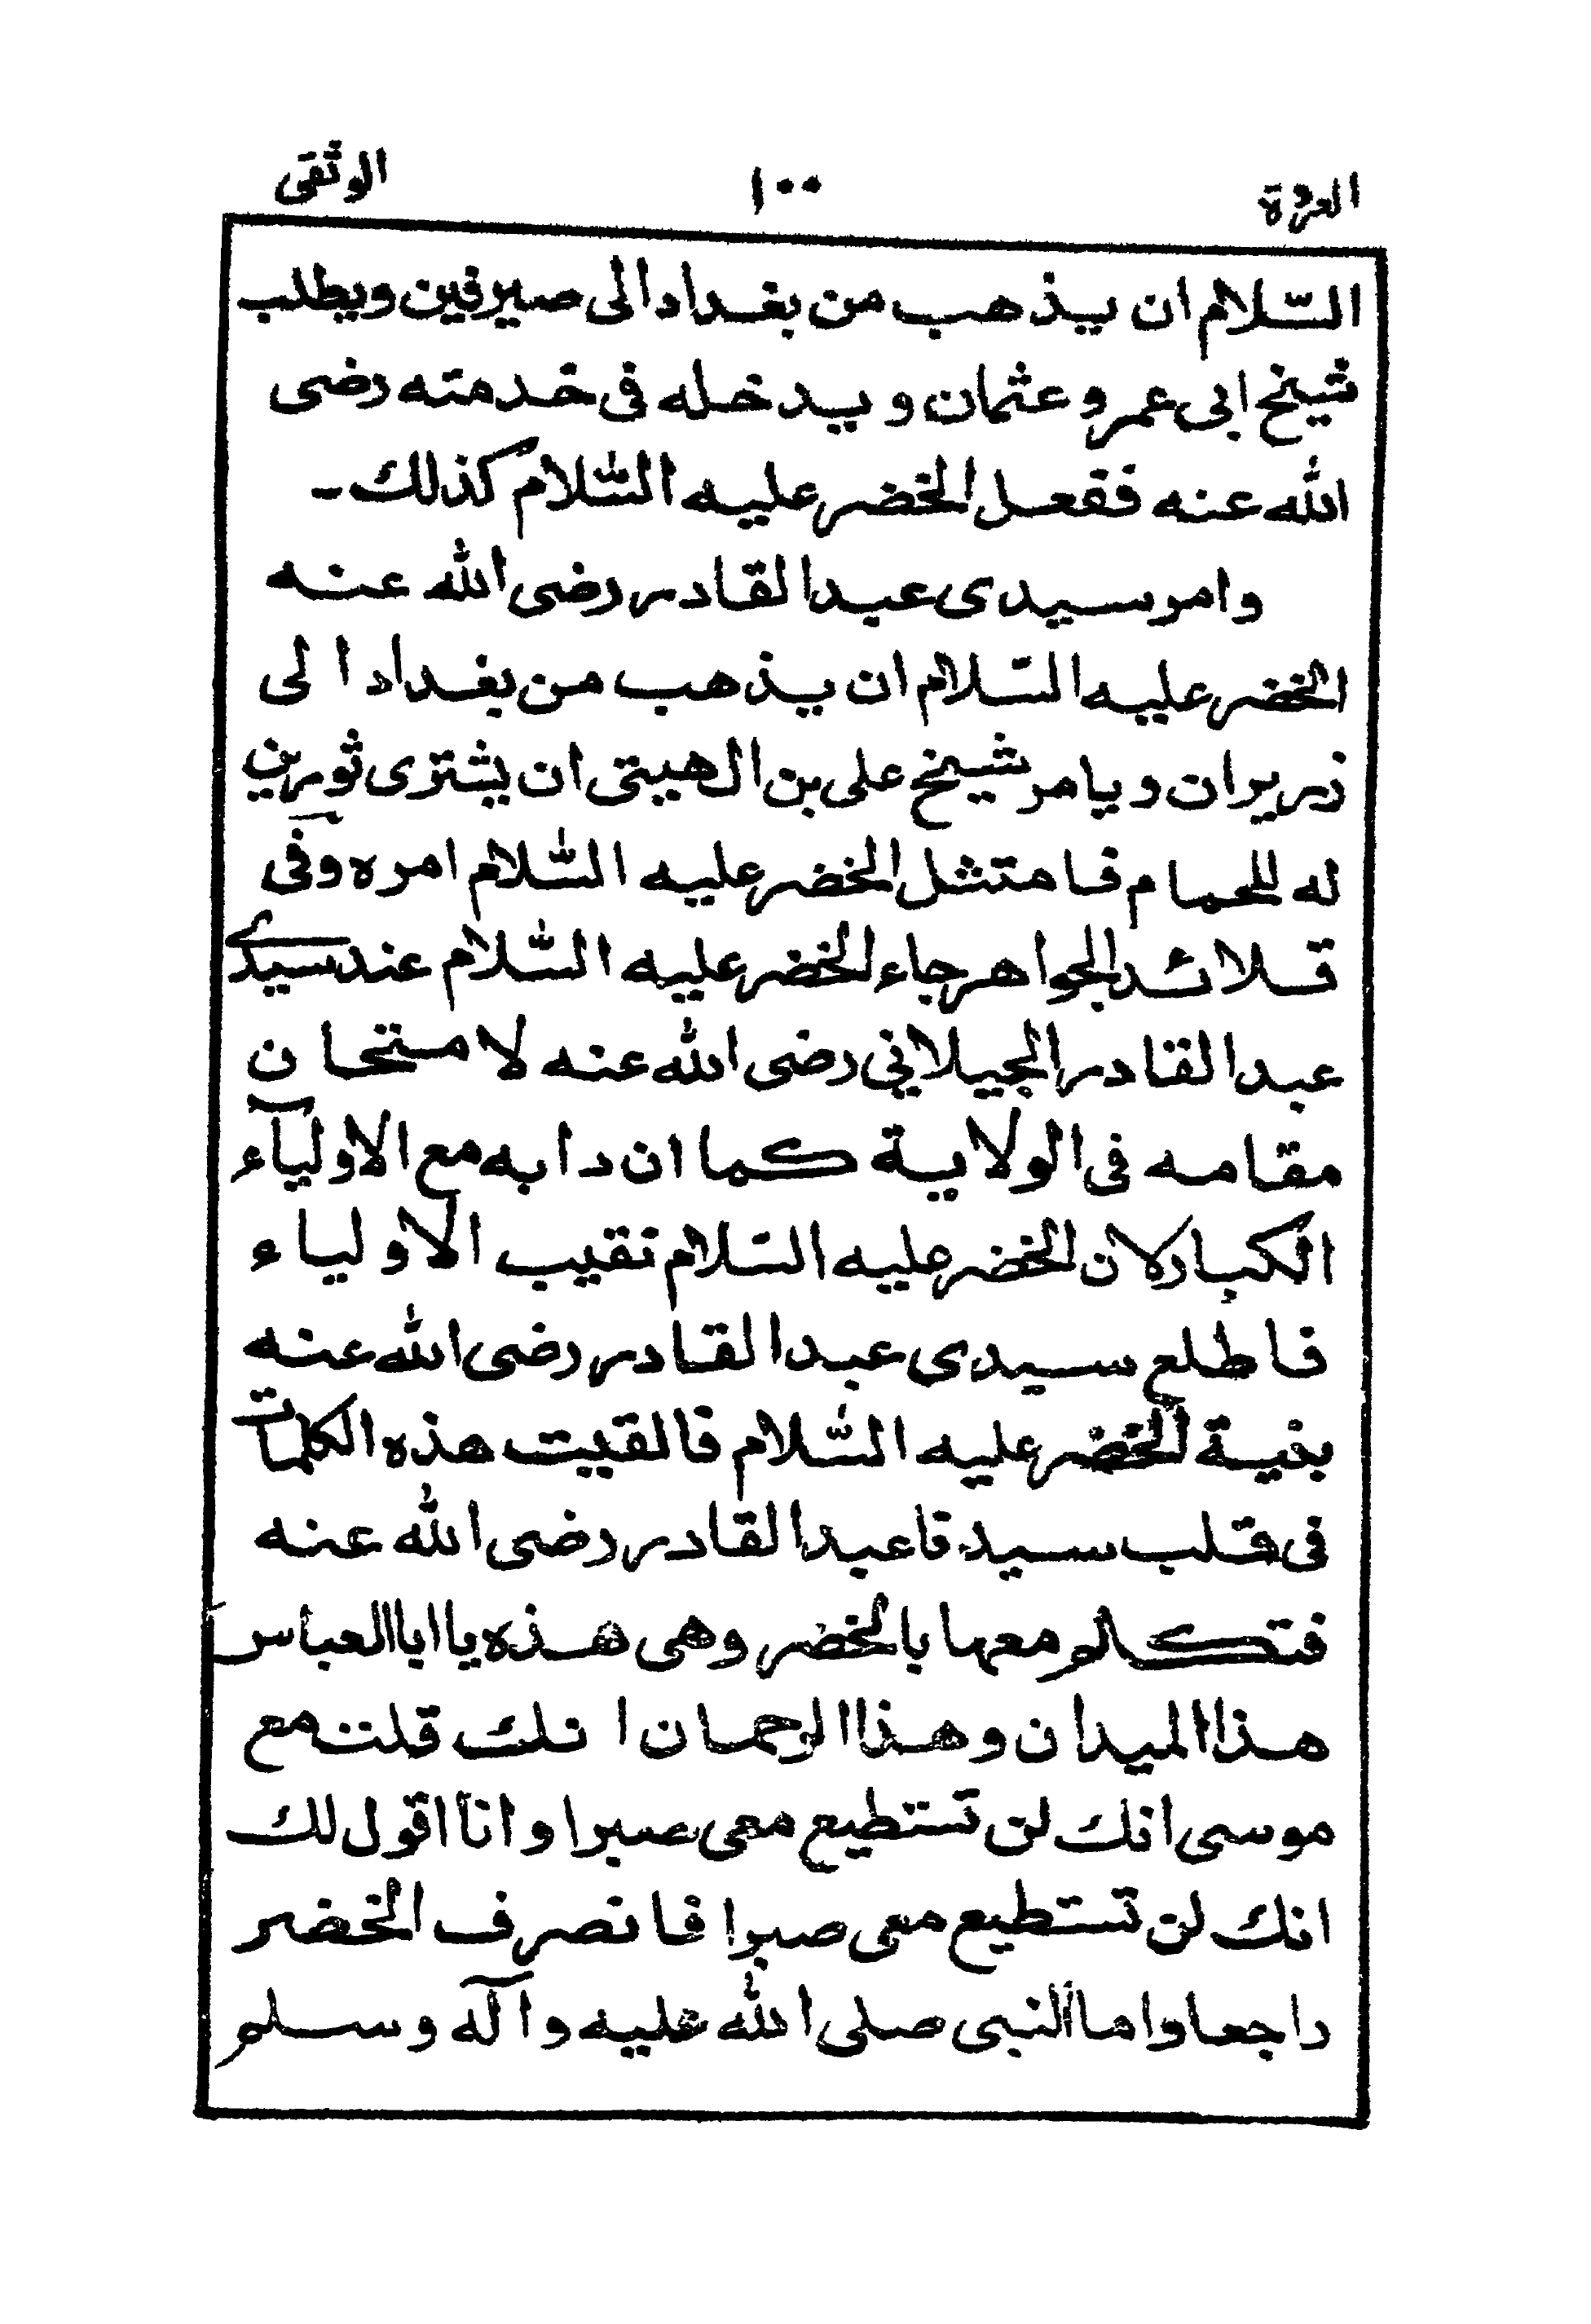 العروة ١٠٠ الوثقى
السّلام ان يذهب من بغداد الى صيرفين ويطلب
شيخ ابى عمرو عثمان ويدخله فى خدمته رضى
الله عنه ففعل الخضر عليه السّلام كذلك -
وامر سيدى عبدالقادر رضى الله عنه
الخضر عليه السّلام ان يذهب من بغداد الى
زريران ويامر شيخ على بن الهيتى ان يشترى ثورين
له للحمام فامتثل الخضر عليه السّلام امره وفى
قلائد الجواهر جاء الخضر عليه السّلام عند سيدى
عبدالقادر الجيلاني رضى الله عنه لامتحان
مقامه فى الولاية كما ان دابه مع الاوليآء
الكبار لان الخضر عليه السّلام نقيب الاولياء
فاطلع سيدى عبدالقادر رضى الله عنه
بغية الخضر عليه السّلام فالقيت هذه الكلمات
فى قلب سيدنا عبدالقادر رضى الله عنه
فتكلم معها بالخضر وهى هذه يا ابا العباس
هذا الميدان وهذا الرحمان انك قلت مع
موسى انك لن تستطيع معى صبرا وانا اقول لك
انك لن تستطيع معى صبرا فانصرف الخضر
راجعا واما النبى صلى الله عليه وآله وسلم